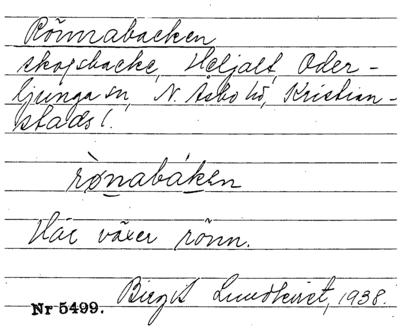 Rönnabacken
skogsbacke, Heljalt, Oder-
ljunga sn, N. Åsbo hd, Kristian-
stads l.
rònabáken
Här växer rönn.
Birgit Lundkvist, 1938.
Nr 5499.